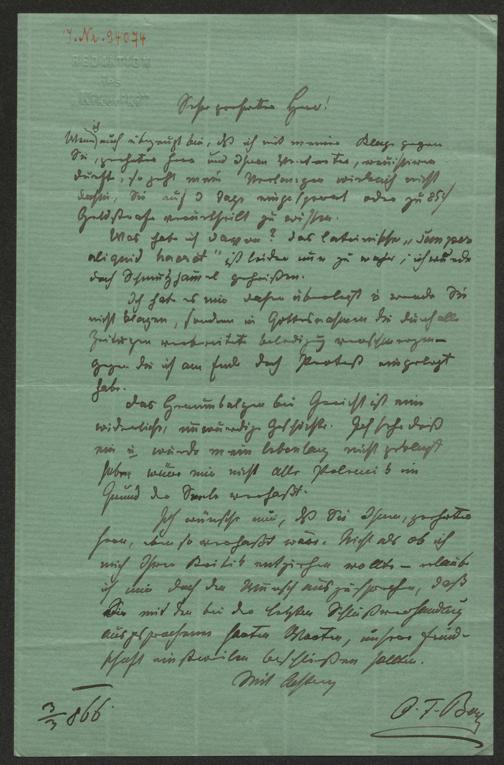 J. Nr. 94074
REDAKTION
des
Sehr geehrter Herr!
Wenn ich auch überzeugt bin, daß ich mit meiner Klage gegen
Sie, geehrter Herr und Ihren Vertreter, reüssiren
dürfte, so geht mein Verlangen wirklich nicht
dahin, Sie auf 3 Tage eingesperrt oder zu 85 f
Geldstrafe verurtheilt zu wissen.
Was hab ich davon? das lateinische „Semper
aliquid haeret" ist leider nur zu wahr; ich werde
doch Schmutzhammel geheißen.
Ich hab es mir daher überlegt u werde Sie
nicht klagen, sondern in Gottesnahmen die durch alle
Zeitungen verbreitete Beleidigung verschmerzen —
gegen die ich am Ende doch Protest eingelegt
habe.
Das Herumbalgen bei Gericht ist eine
widerliche, unwürdige Geschichte. Ich
ein u. würde mein lebenlang nicht geklagt
haben, wäre mir nicht alle Polemik im
Grund der Seele verhaßt.
Ich wünsche nur, daß sie Ihnen, geehrter
Herr, eben so verhaßt wäre. Nicht als ob ich
mich Ihrer Kritik entziehen wollte – erlaube
ich mir doch den Wunsch auszusprechen, daß
Sie mit den bei der letzten Schlußverhandlung
ausgesprochenen harten Worten, unsere Freund-
schaft einstweilen beschließen sollen.
Mit Achtung
3/3 866.
O. F. Berg